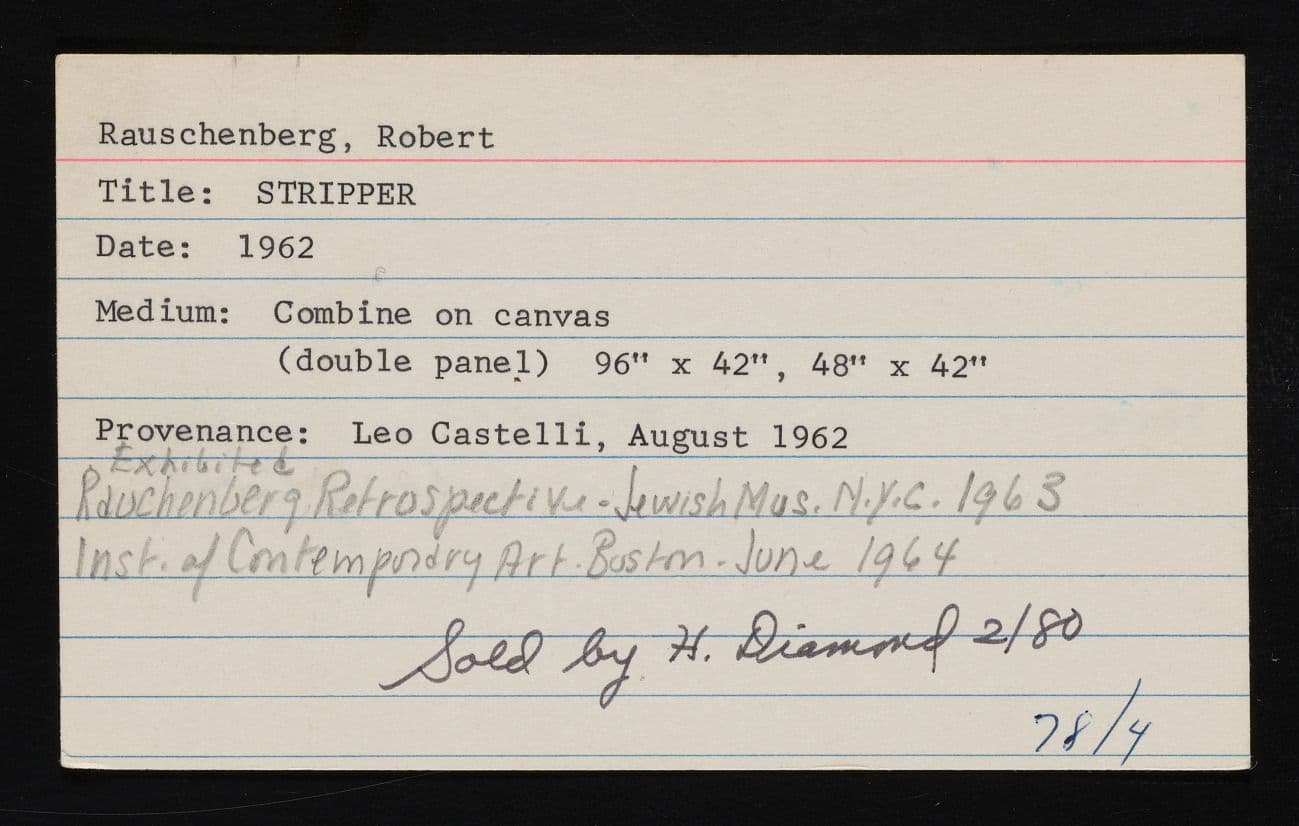 Rauschenberg, Robert
Title: STRIPPER
Date: 1962
Medium: Combine on canvas
(double panel) 96" x 42", 48" x 42"
Provenance: Leo Castelli, August 1962
Exhibited
Rauchenberg Retrospective - Jewish Mus. N.Y.C. 1963
Inst. of Contemporary Art. Boston - June 1964
Sold by H. Diamond 2/80
78/4